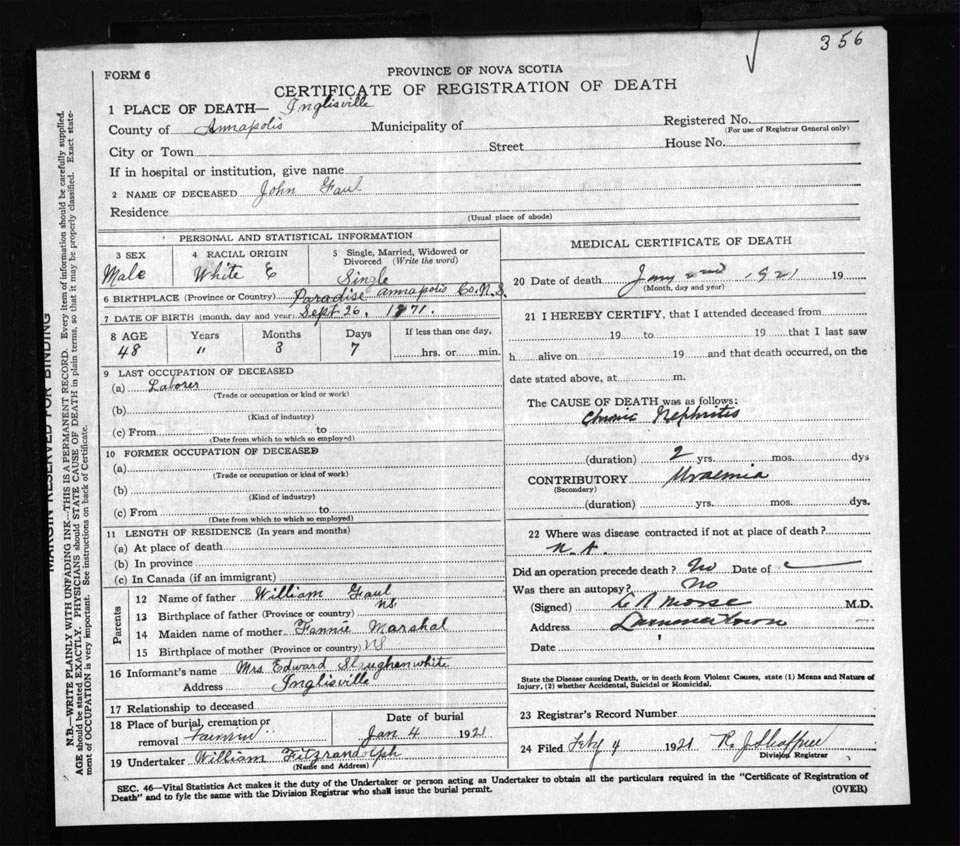 356
FORM 6
PROVINCE OF NOVA SCOTIA
CERTIFICATE OF REGISTRATION OF DEATH
1 PLACE OF DEATH— Inglisville
County of Annapolis Municipality of Registered No.
(For use of Registrar General only)
City or Town Street House No.
If in hospital or institution, give name
2 NAME OF DECEASED John Gaul
Residence
(Usual place of abode)
PERSONAL AND STATISTICAL INFORMATION
3 SEX 4 RACIAL ORIGIN 5 Single, Married, Widowed or Divorced (Write the word)
Male White E Single
6 BIRTHPLACE (Province or Country) Paradise Annapolis Co. N.S.
7 DATE OF BIRTH (month, day and year) Sept 26, 1871.
8 AGE Years Months Days If less than one day,
48 " 3 7 hrs. or min.
9 LAST OCCUPATION OF DECEASED
(a) Laborer
(Trade or occupation or kind or work)
(b)
(Kind of industry)
(c) From to
(Date from which to which so employed)
10 FORMER OCCUPATION OF DECEASED
(a)
(Trade or occupation or kind of work)
(b)
(Kind of industry)
(c) From to
(Date from which to which so employed)
11 LENGTH OF RESIDENCE (In years and months)
(a) At place of death
(b) In province
(c) In Canada (if an immigrant)
Parents
12 Name of father William Gaul
13 Birthplace of father (Province or country) NS
14 Maiden name of mother Fannie Marshal
15 Birthplace of mother (Province or country) NS
16 Informant's name Mrs Edward Slaughenwhite
Address Inglisville
17 Relationship to deceased
18 Place of burial, cremation or removal Date of burial
Jan 4 1921
19 Undertaker William Fitzrandolph
(Name and Address)
MEDICAL CERTIFICATE OF DEATH
20 Date of death Jany 2nd 1921 19
(Month, day and year)
21 I HEREBY CERTIFY, that I attended deceased from
19 to 19 that I last saw
h alive on 19 and that death occurred, on the
date stated above, at m.
The CAUSE OF DEATH was as follows:
Chronic Nephritis
(duration) 2 yrs. mos. dys
CONTRIBUTORY Uraemia
(Secondary)
(duration) yrs. mos. dys.
22 Where was disease contracted if not at place of death?
Did an operation precede death? No Date of
Was there an autopsy? No
(Signed) Morse M.D.
Address
Date
State the Disease causing Death, or in death from Violent Causes, state (1) Means and Nature of
Injury, (2) whether Accidental, Suicidal or Homicidal.
23 Registrar's Record Number
24 Filed Feby 4 1921 R. J. Shaffner
Division Registrar
SEC. 46—Vital Statistics Act makes it the duty of the Undertaker or person acting as Undertaker to obtain all the particulars required in the "Certificate of Registration of
Death" and to fyle the same with the Division Registrar who shall issue the burial permit. (OVER)
MARGIN RESERVED FOR BINDING
N.B.—WRITE PLAINLY WITH UNFADING INK—THIS IS A PERMANENT RECORD. Every item of information should be carefully supplied.
AGE should be stated EXACTLY. PHYSICIANS should STATE CAUSE OF DEATH in plain terms, so that it may be properly classified. Exact state-
ment of OCCUPATION is very important. See instructions on back of Certificate.